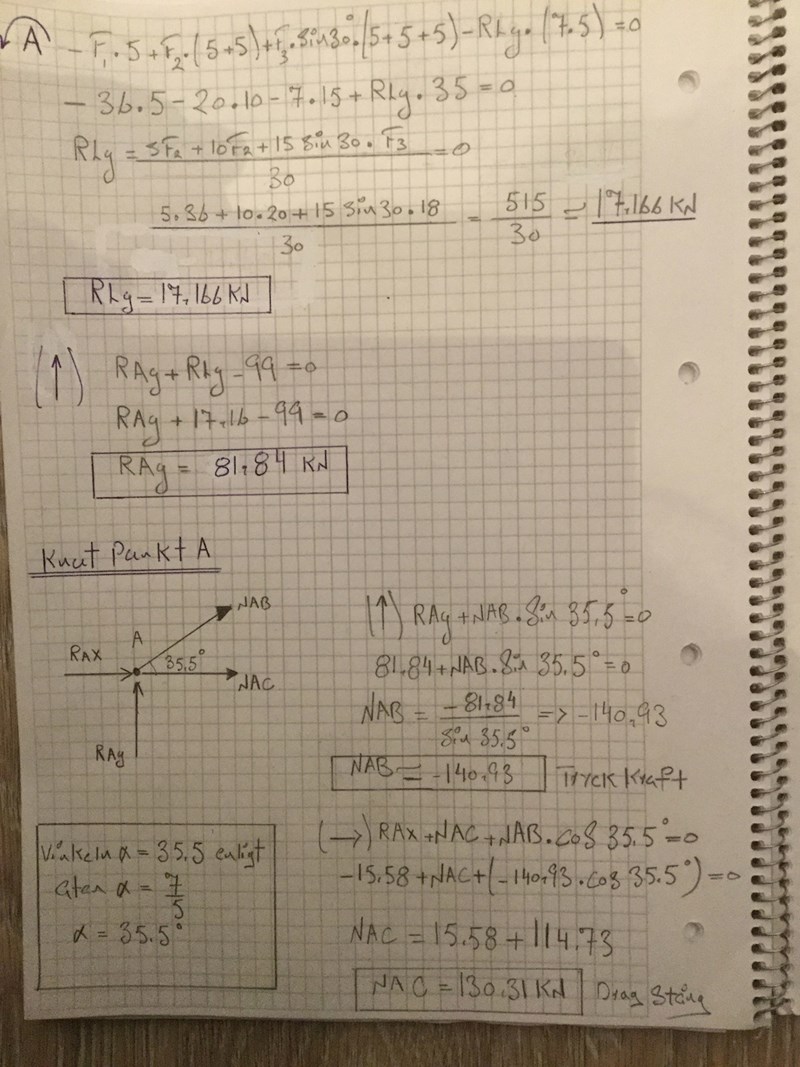 A - F₁·5+F₂·(5+5)+F₃·Sin30°·(5+5+5)-RLy·(7·5)=0
- 36·5-20·10-7·15+RLy·35=0
RLy = 5F₂+10F₂+15 Sin 30·F3 =0
30
5·36+10·20+15 Sin30·18 = 515 = 17,166 KN
30 30
RLy=17,166 KN
(↑) RAy+RLy-99=0
RAy+17,16-99=0
RAy= 81,84 KN
Knut Punkt A
NAB
A
RAX 35,5° NAC
RAy
(↑) RAy+NAB·Sin 35,5°=0
81,84+NAB·Sin 35.5°=0
NAB = -81,84 => -140,93
Sin 35.5°
NAB = -140,93 Tryck Kraft
Vinkeln α = 35.5 enligt
atan α = 7
5
α = 35.5°
(→) RAX+NAC+NAB·cos 35.5°=0
-15.58+NAC+(-140,93·cos 35.5°)=0
NAC = 15.58+114,73
NAC=130.31 KN Drag Stång